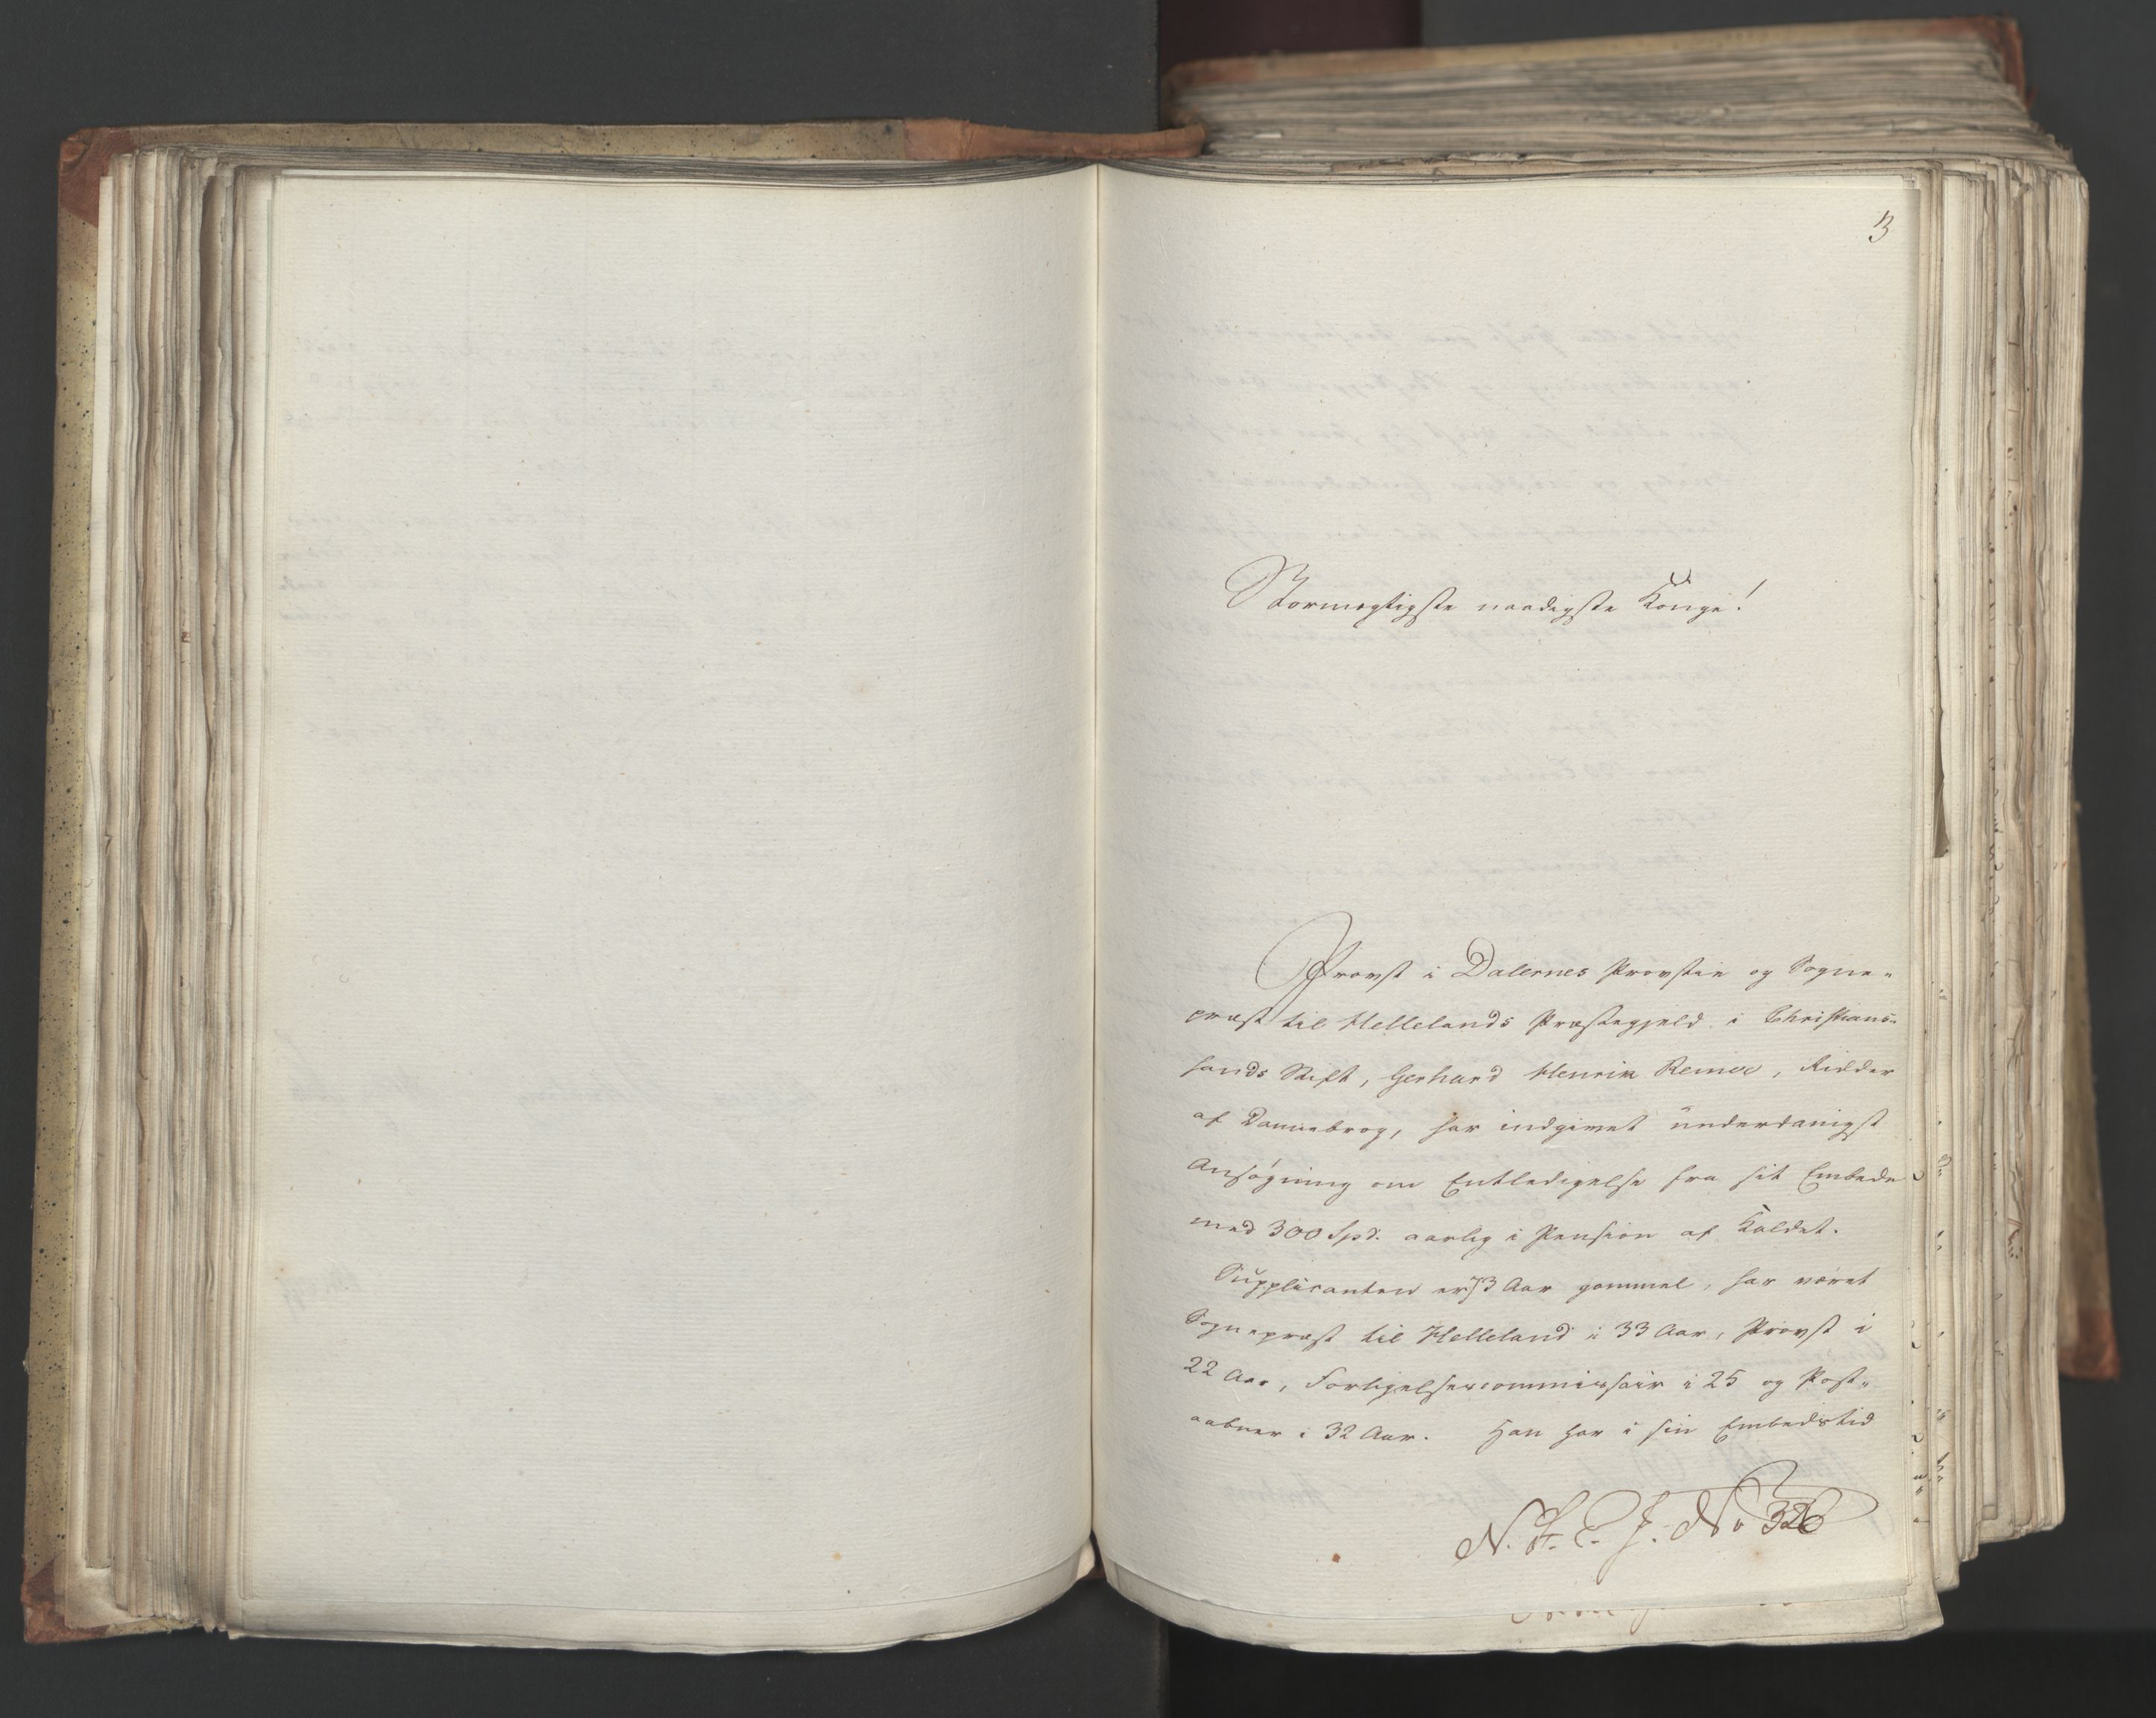 3
Stormægtigste naadigste Konge!
Provst i Dalernes Provstie og Sogne-
præst til Hellelands Præstegjeld i Christian-
sands Stift, Gerhard Henrik Reiner, Ridder
af Dannebrog, har indgivet underdanigst
Ansøgning om Entledigelse fra sit Embede
med 300 Spd. aarlig i Pension af Kaldet.
Supplicanten er 73 Aar gammel, har været
Sognepræst til Helleland i 33 Aar, Provst i
22 Aar, Forligelsescommissair i 25 og Post-
aabner i 32 Aar. Han har i sin Embedstid
No 326